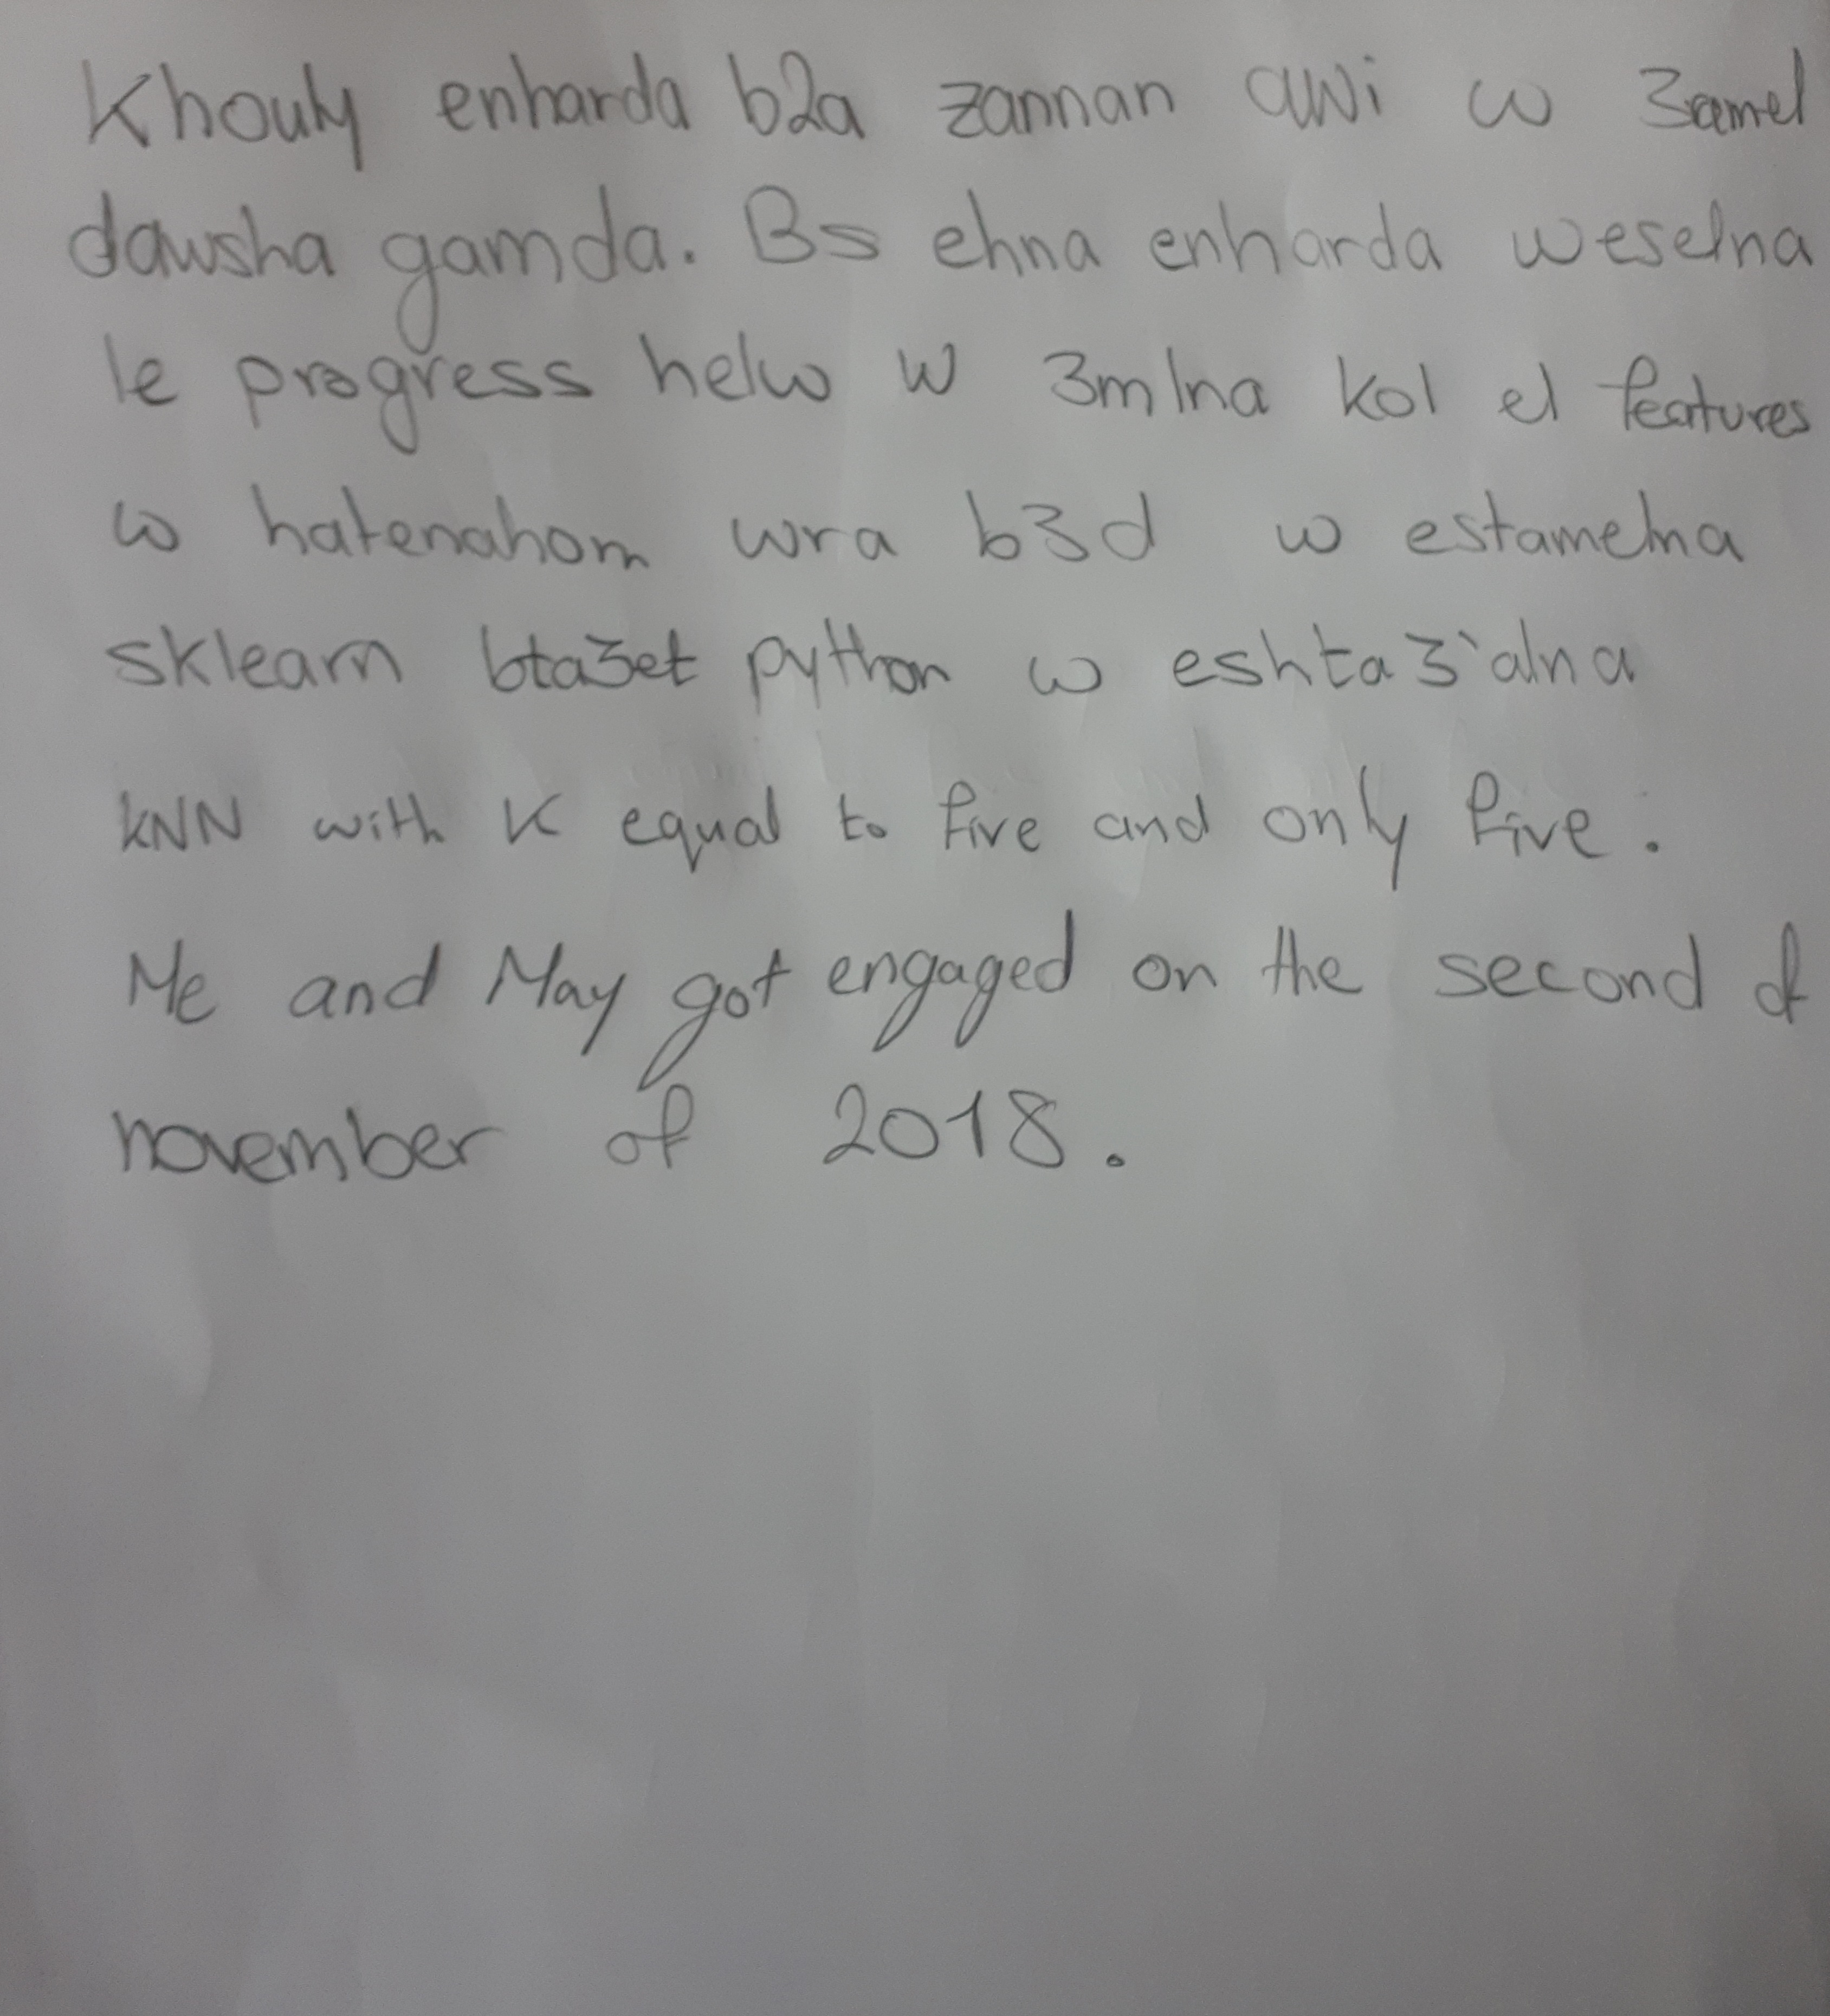 Khouly enharda b2a zannan awi w 3amel
dawsha gamda. Bs ehna enharda weselna
le progress helw w 3mlna kol el features
w hatenahom wra b3d w estamelna
sklearn bta3et python w eshta3'alna
kNN with K equal to five and only five.
Me and May got engaged on the second of
november of 2018.